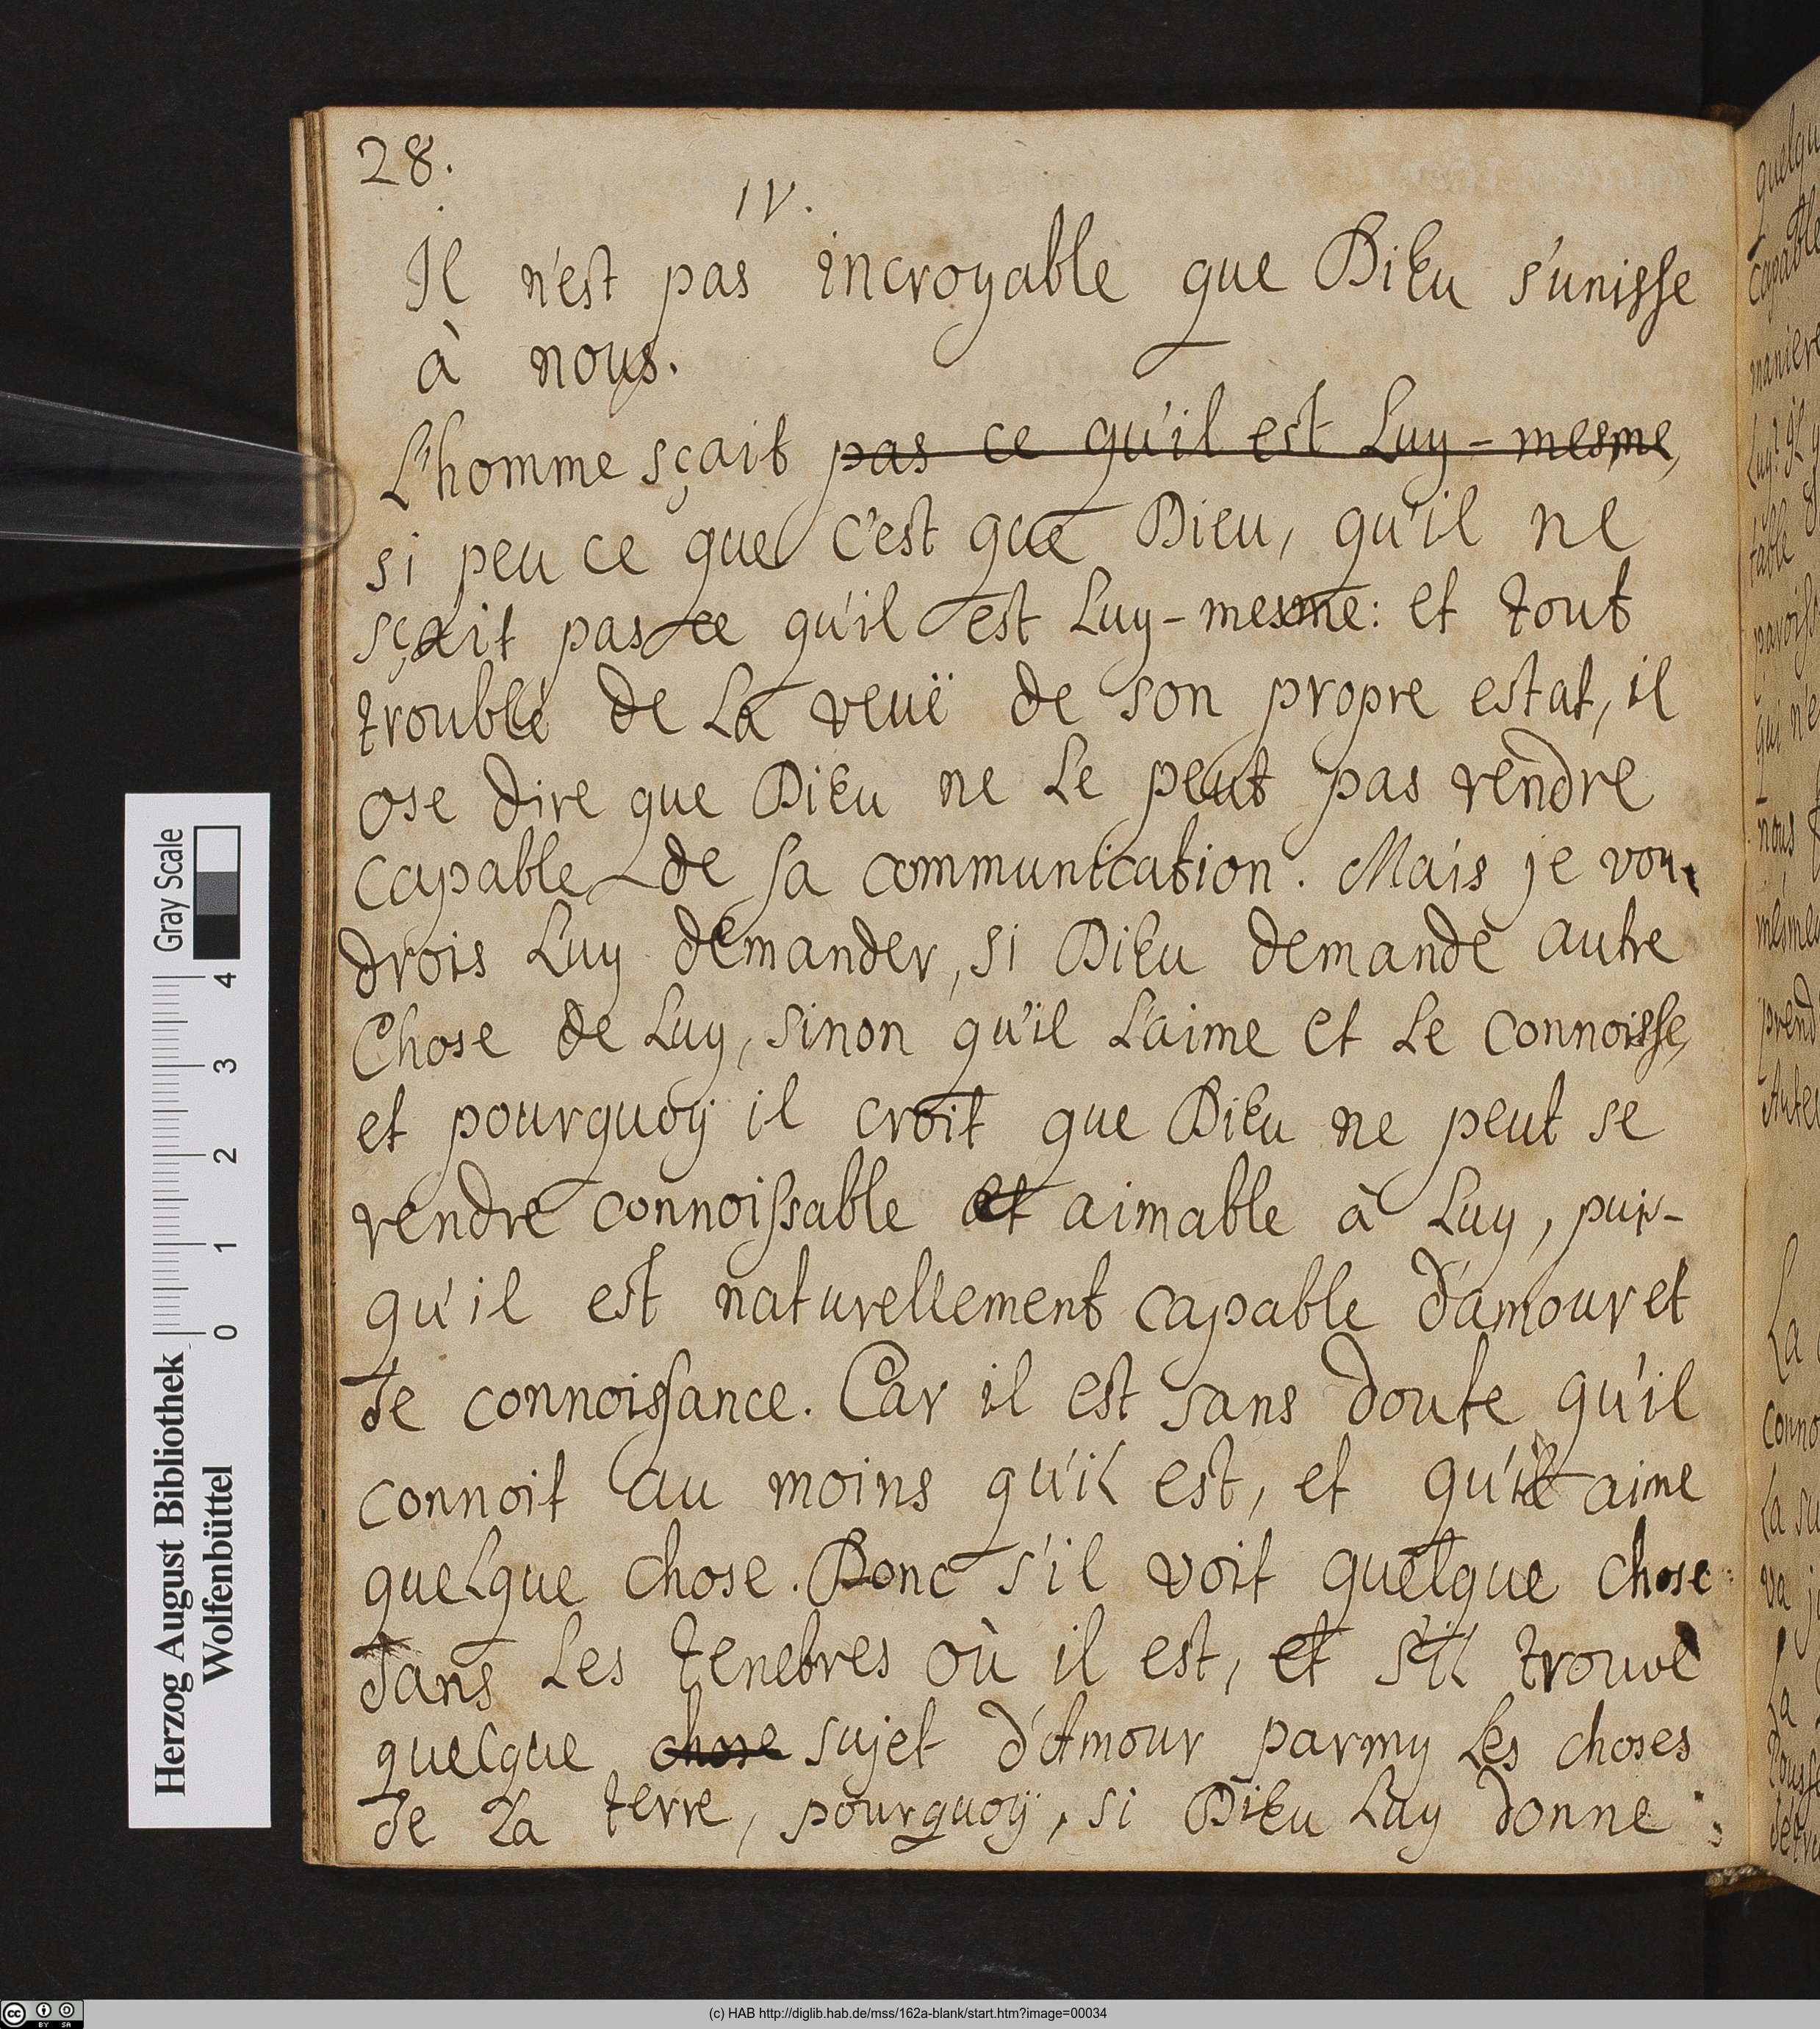 28.
IV.
Il n'est pas incroyable que Dieu s'unisse
à nous.
L'homme sçait pas ce qu'il est Luy-mesme,
si peu ce que c'est que Dieu, qu'il ne
sçait pas ce qu'il est Luy-mesme: et tout
troublé de La veuë de son propre estat, il
ose dire que Dieu ne Le peut pas rendre
capable de sa communication. Mais je vou-
drois Luy demander, si Dieu demande autre
Chose de Luy, sinon qu'il L'aime et Le connoisse,
et pourquoÿ il croit que Dieu ne peut se
rendre connoissable et aimable à Luy, puis-
qu'il est naturellement capable d'amour et
de connoissance. Car il est sans doute qu'il
connoit au moins qu'il est, et qu'il aime
quelque chose. Donc s'il voit quelque chose
dans Les tenebres où il est, et s'il trouve
quelque chose sujet d'Amour parmy Les choses
de La terre, pourquoÿ, si Dieu Luy donne
Herzog August Bibliothek
Wolfenbüttel
0 1 2 3 4
Gray Scale
(c) HAB http://diglib.hab.de/mss/162a-blank/start.htm?image=00034
cc BY SA